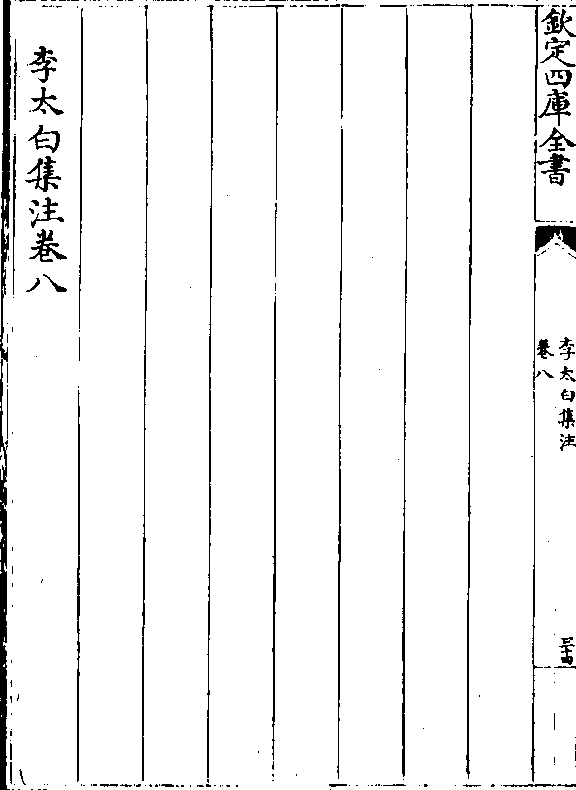 欽定四庫全書
李太白集注
卷八
三十四
李太白集注卷八